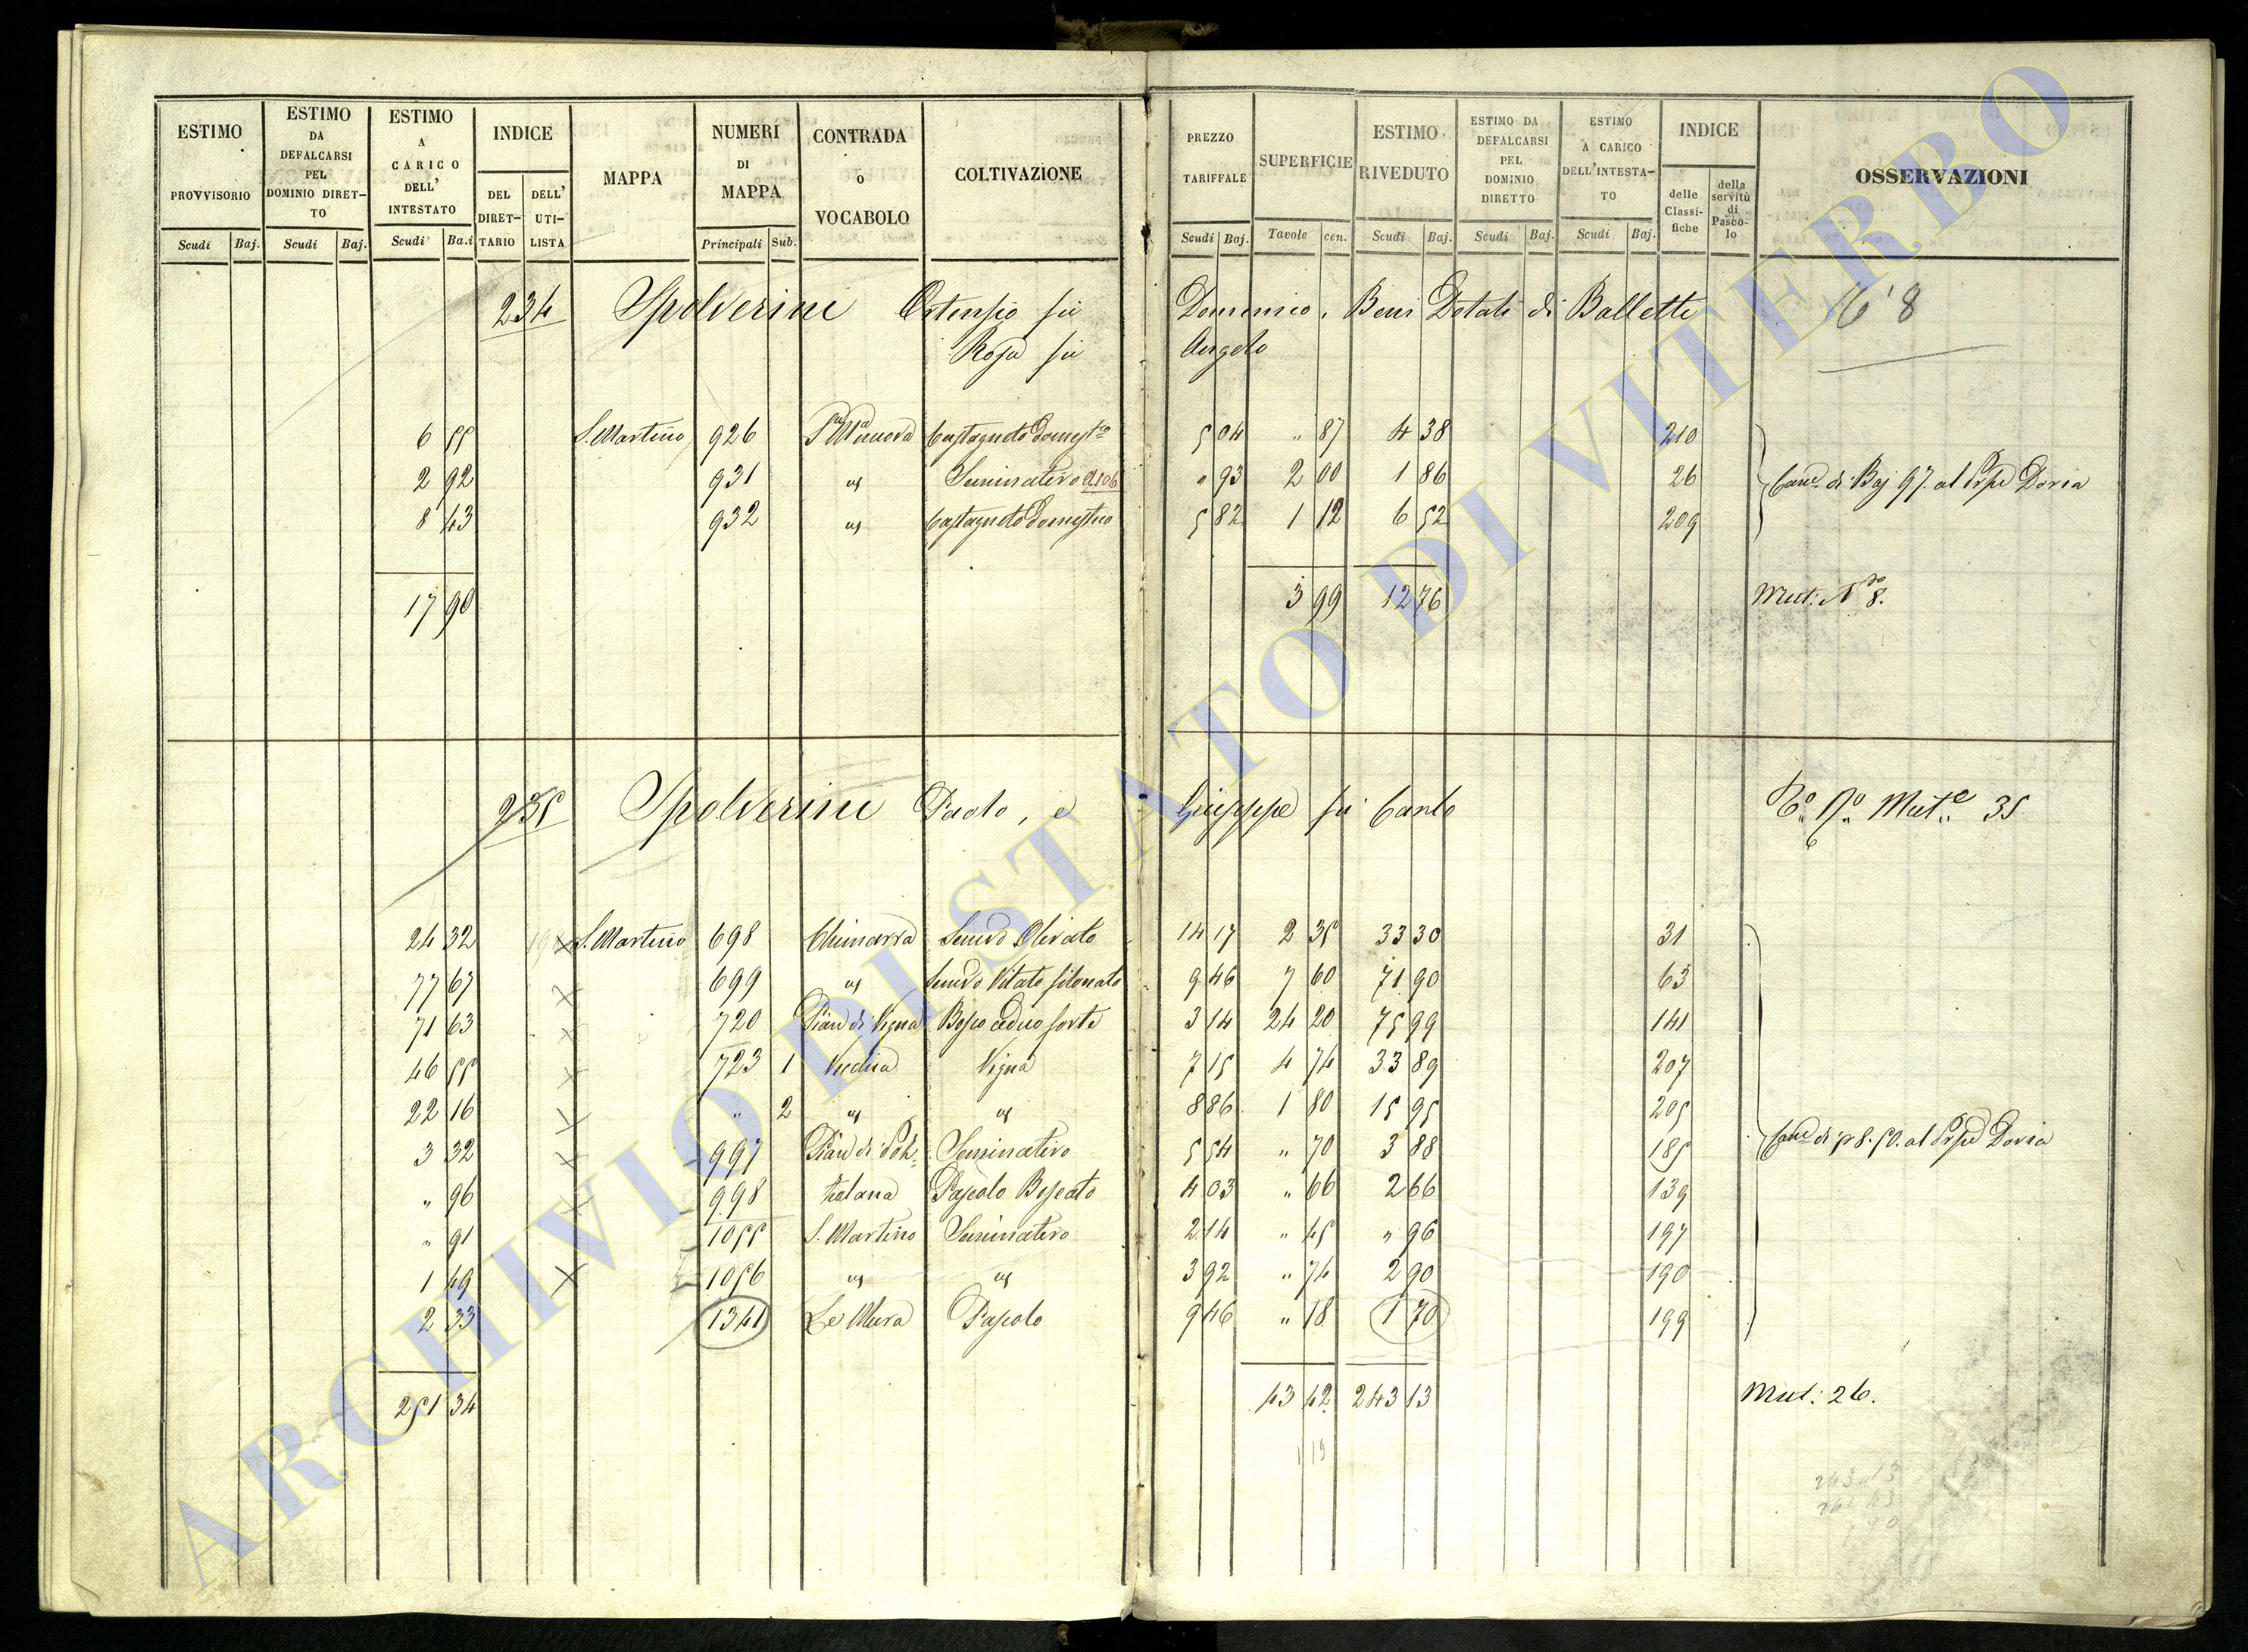 ESTIMO PROVVISORIO Scudi Baj.
ESTIMO DA DEFALCARSI PEL DOMINIO DIRETTO Scudi Baj.
ESTIMO A CARICO DELL' INTESTATO Scudi Ba.i
INDICE DEL DIRETTARIO DELL' UTILISTA
MAPPA
NUMERI DI MAPPA Principali Sub.
CONTRADA O VOCABOLO
COLTIVAZIONE
PREZZO TARIFFALE Scudi Baj.
SUPERFICIE Tavole cen.
ESTIMO RIVEDUTO Scudi Baj.
ESTIMO DA DEFALCARSI PEL DOMINIO DIRETTO Scudi Baj.
ESTIMO A CARICO DELL'INTESTATO Scudi Baj.
INDICE delle Classifiche della servitù di Pascolo
OSSERVAZIONI
234 Spolverini Ortensio fù Domenico. Beni Dotali di Ballette
Rosa fù Angelo
16'8
6 55 S. Martino 926 Castagneto Domest.co 5 04 " 87 4 38 210
2 92 931 Seminativo 2106 " 93 2 00 1 86 26 di Baj 97. al Doria
8 43 932 Castagneto Domestico 5 82 1 12 6 52 209
17 90 3 99 12 76 Mut: N.ro 8.
235 Spolverini Paolo, e Giuseppe fù Carlo 35
24 32 S. Martino 698 Chimarra Semvo Olivato 14 17 2 35 33 30 31
77 67 699 Semvo Vitato filonato 9 46 7 60 71 90 63
71 63 720 Pian di Vigna Bosco ceduo forte 3 14 24 20 75 99 141
46 55 723 1 Vecchia Vigna 7 15 4 74 33 89 207
22 16 " 2 8 86 1 80 15 95 205
3 32 997 Pian di Seminativo 5 54 " 70 3 88 185 8.50. al Doria
" 96 998 Pascolo Boscato 4 03 " 66 2 66 139
" 91 1055 S. Martino Seminativo 2 14 " 45 " 96 197
1 49 1056 3 92 " 74 2 90 190
2 33 1341 Le Mura Pascolo 9 46 " 18 1 70 199
251 34 43 42 243 13 Mut: 26.
243 13
ARCHIVIO DI STATO DI VITERBO